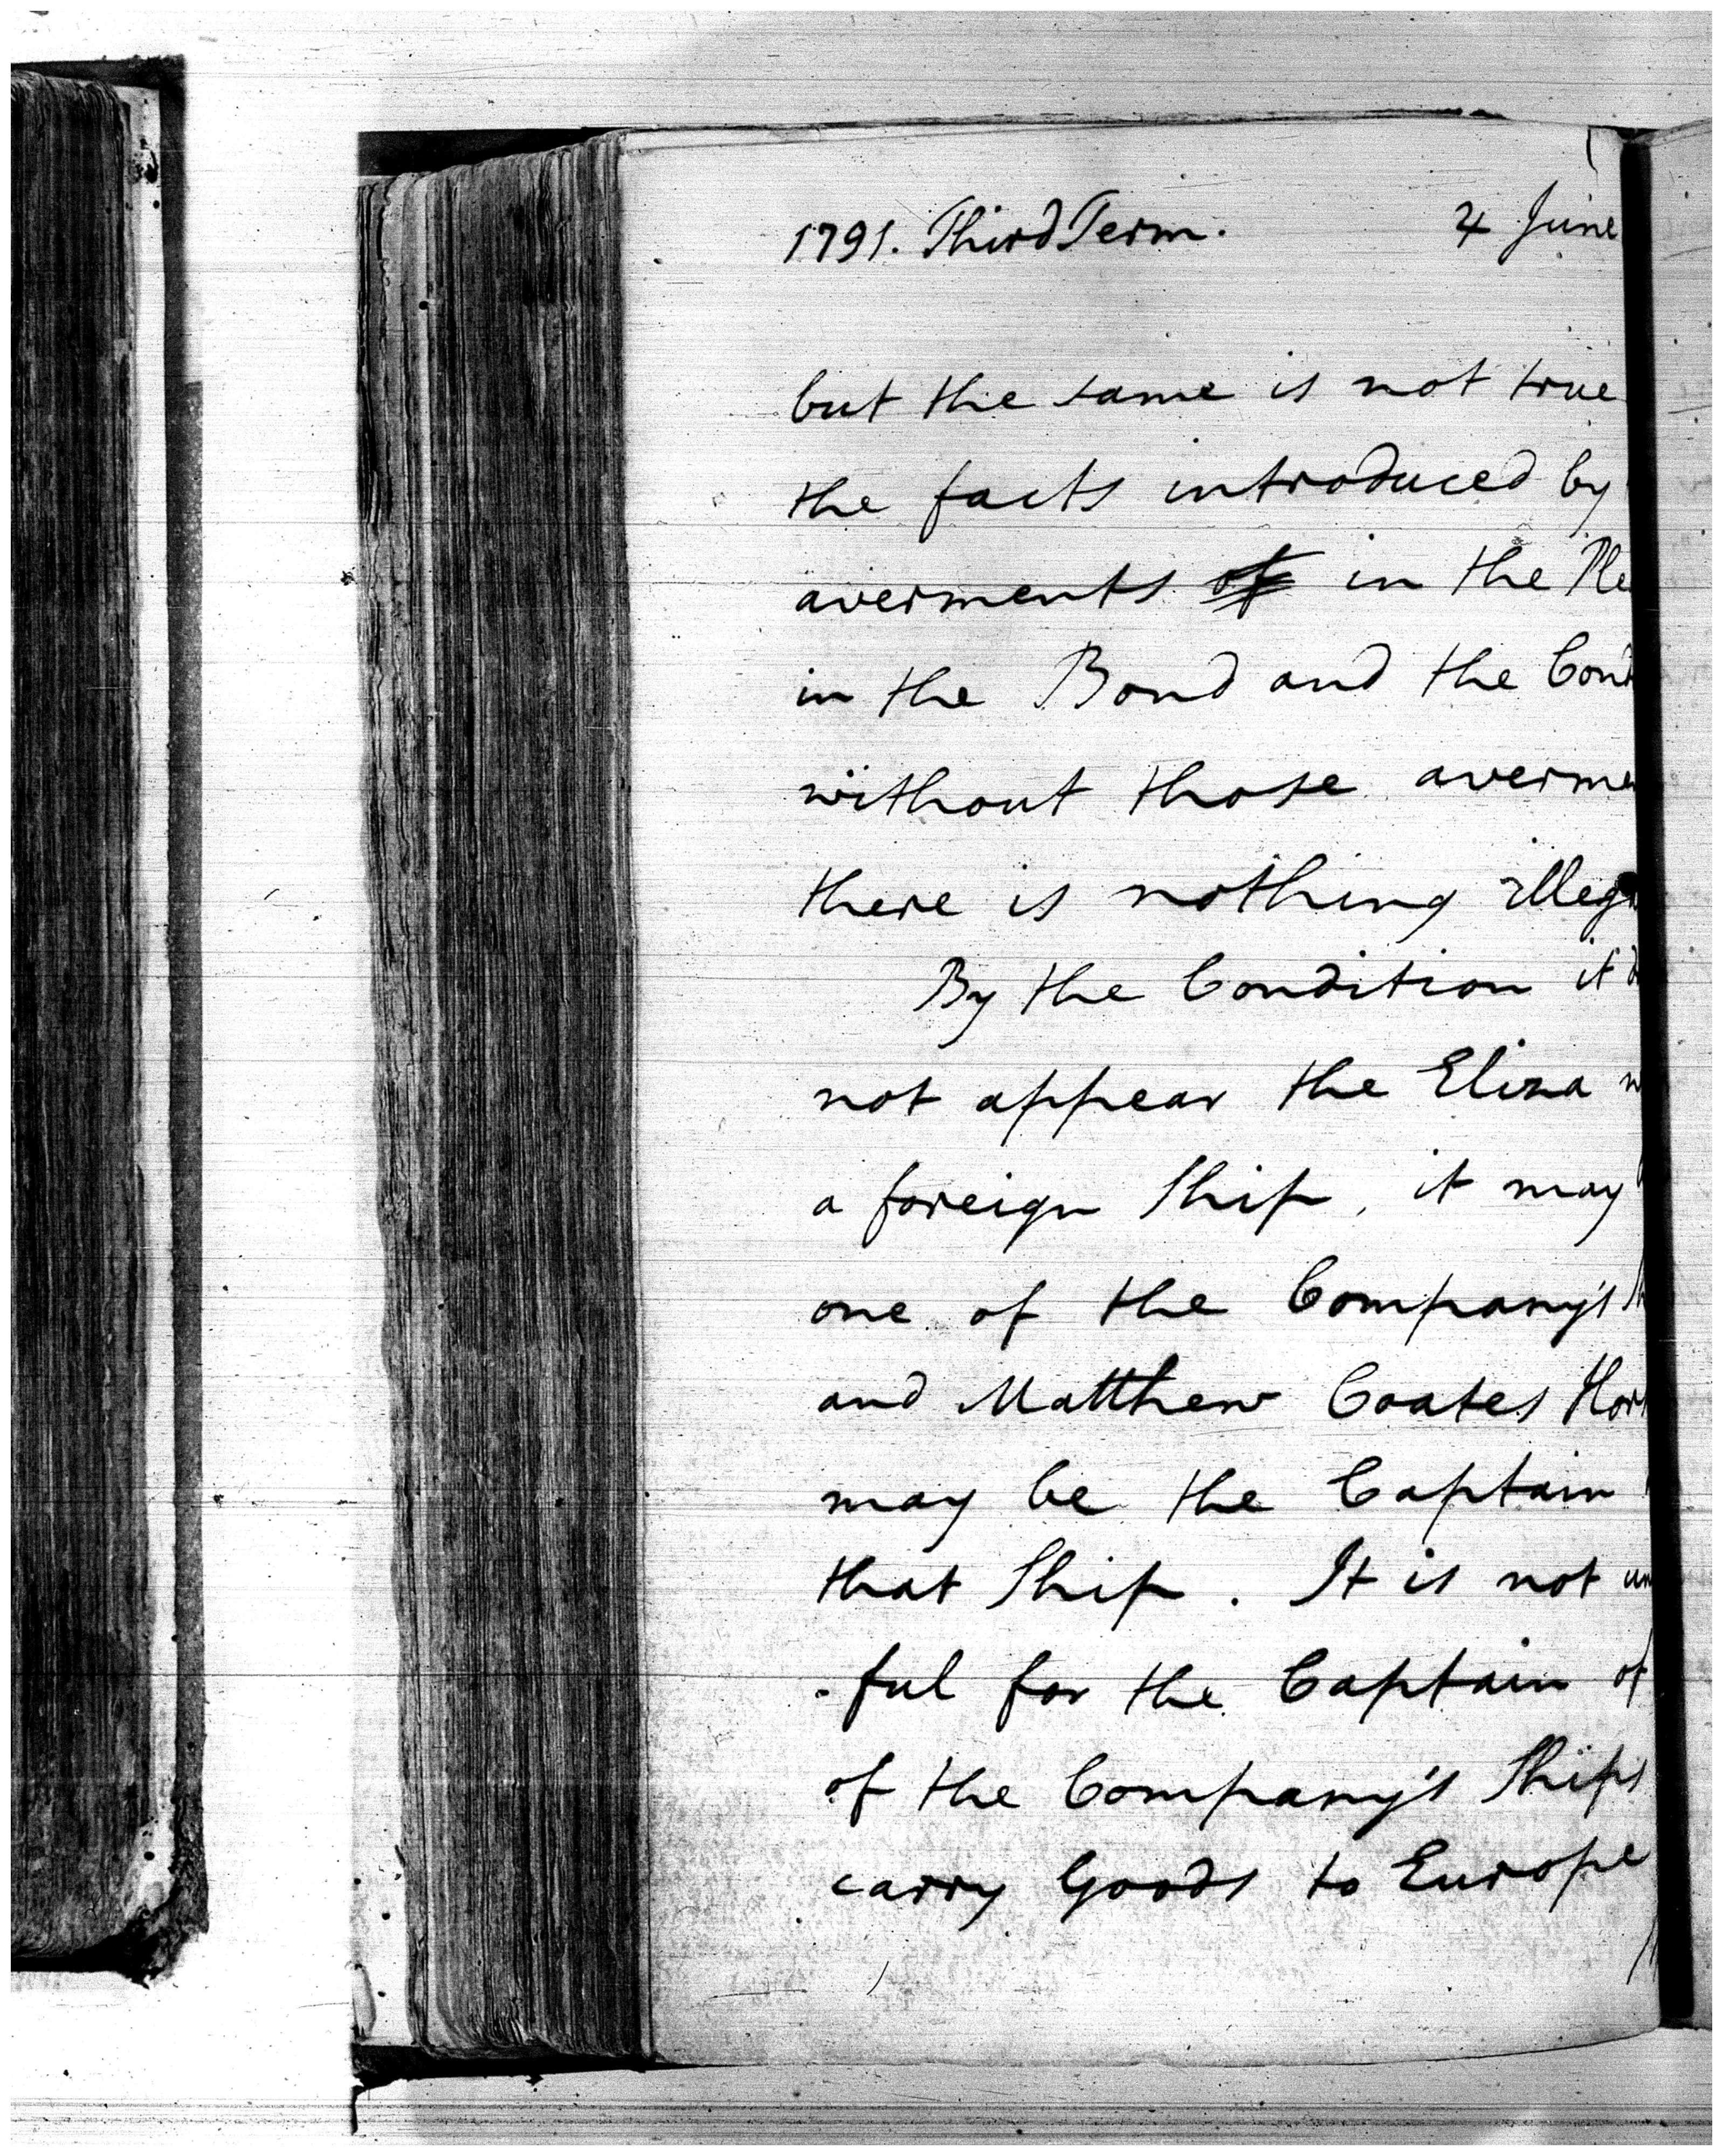 1791. Third Term. 4 June
but the same is not true
the facts introduced by
averments of in the Ple
in the Bond and the Cond
without those averme
there is nothing illeg
By the Condition it d
not appear the Eliza w
a foreign Ship, it may
one of the Company's Sh
and Matthew Coates Hor
may be the Captain
that Ship. It is not un
-ful for the Captain of
of the Company's Ships
carry Goods to Europe